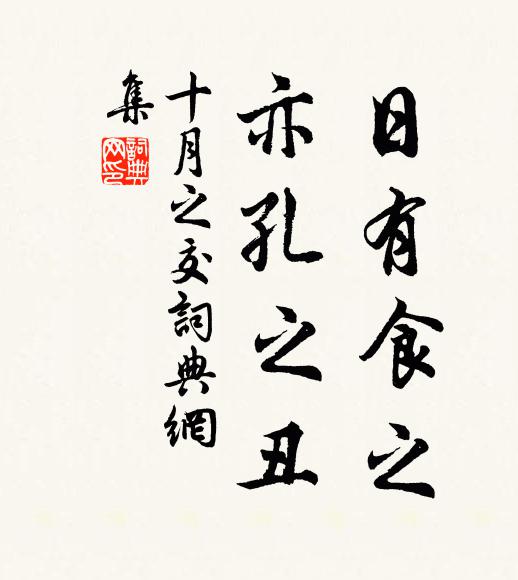 日有食之
亦孔之丑
十月之交詞典網
集
詞典网印